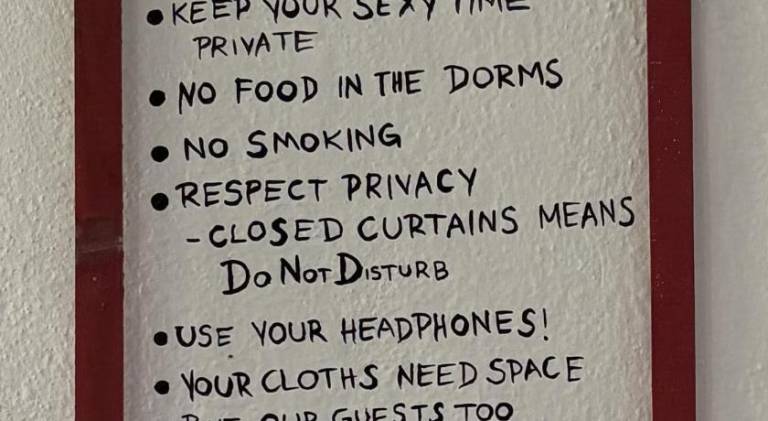 • KEEP YOUR SEXY TIME
PRIVATE
• NO FOOD IN THE DORMS
• NO SMOKING
• RESPECT PRIVACY
- CLOSED CURTAINS MEANS
DO NOT DISTURB
• USE YOUR HEADPHONES!
• YOUR CLOTHS NEED SPACE
BUT OUR GUESTS TOO